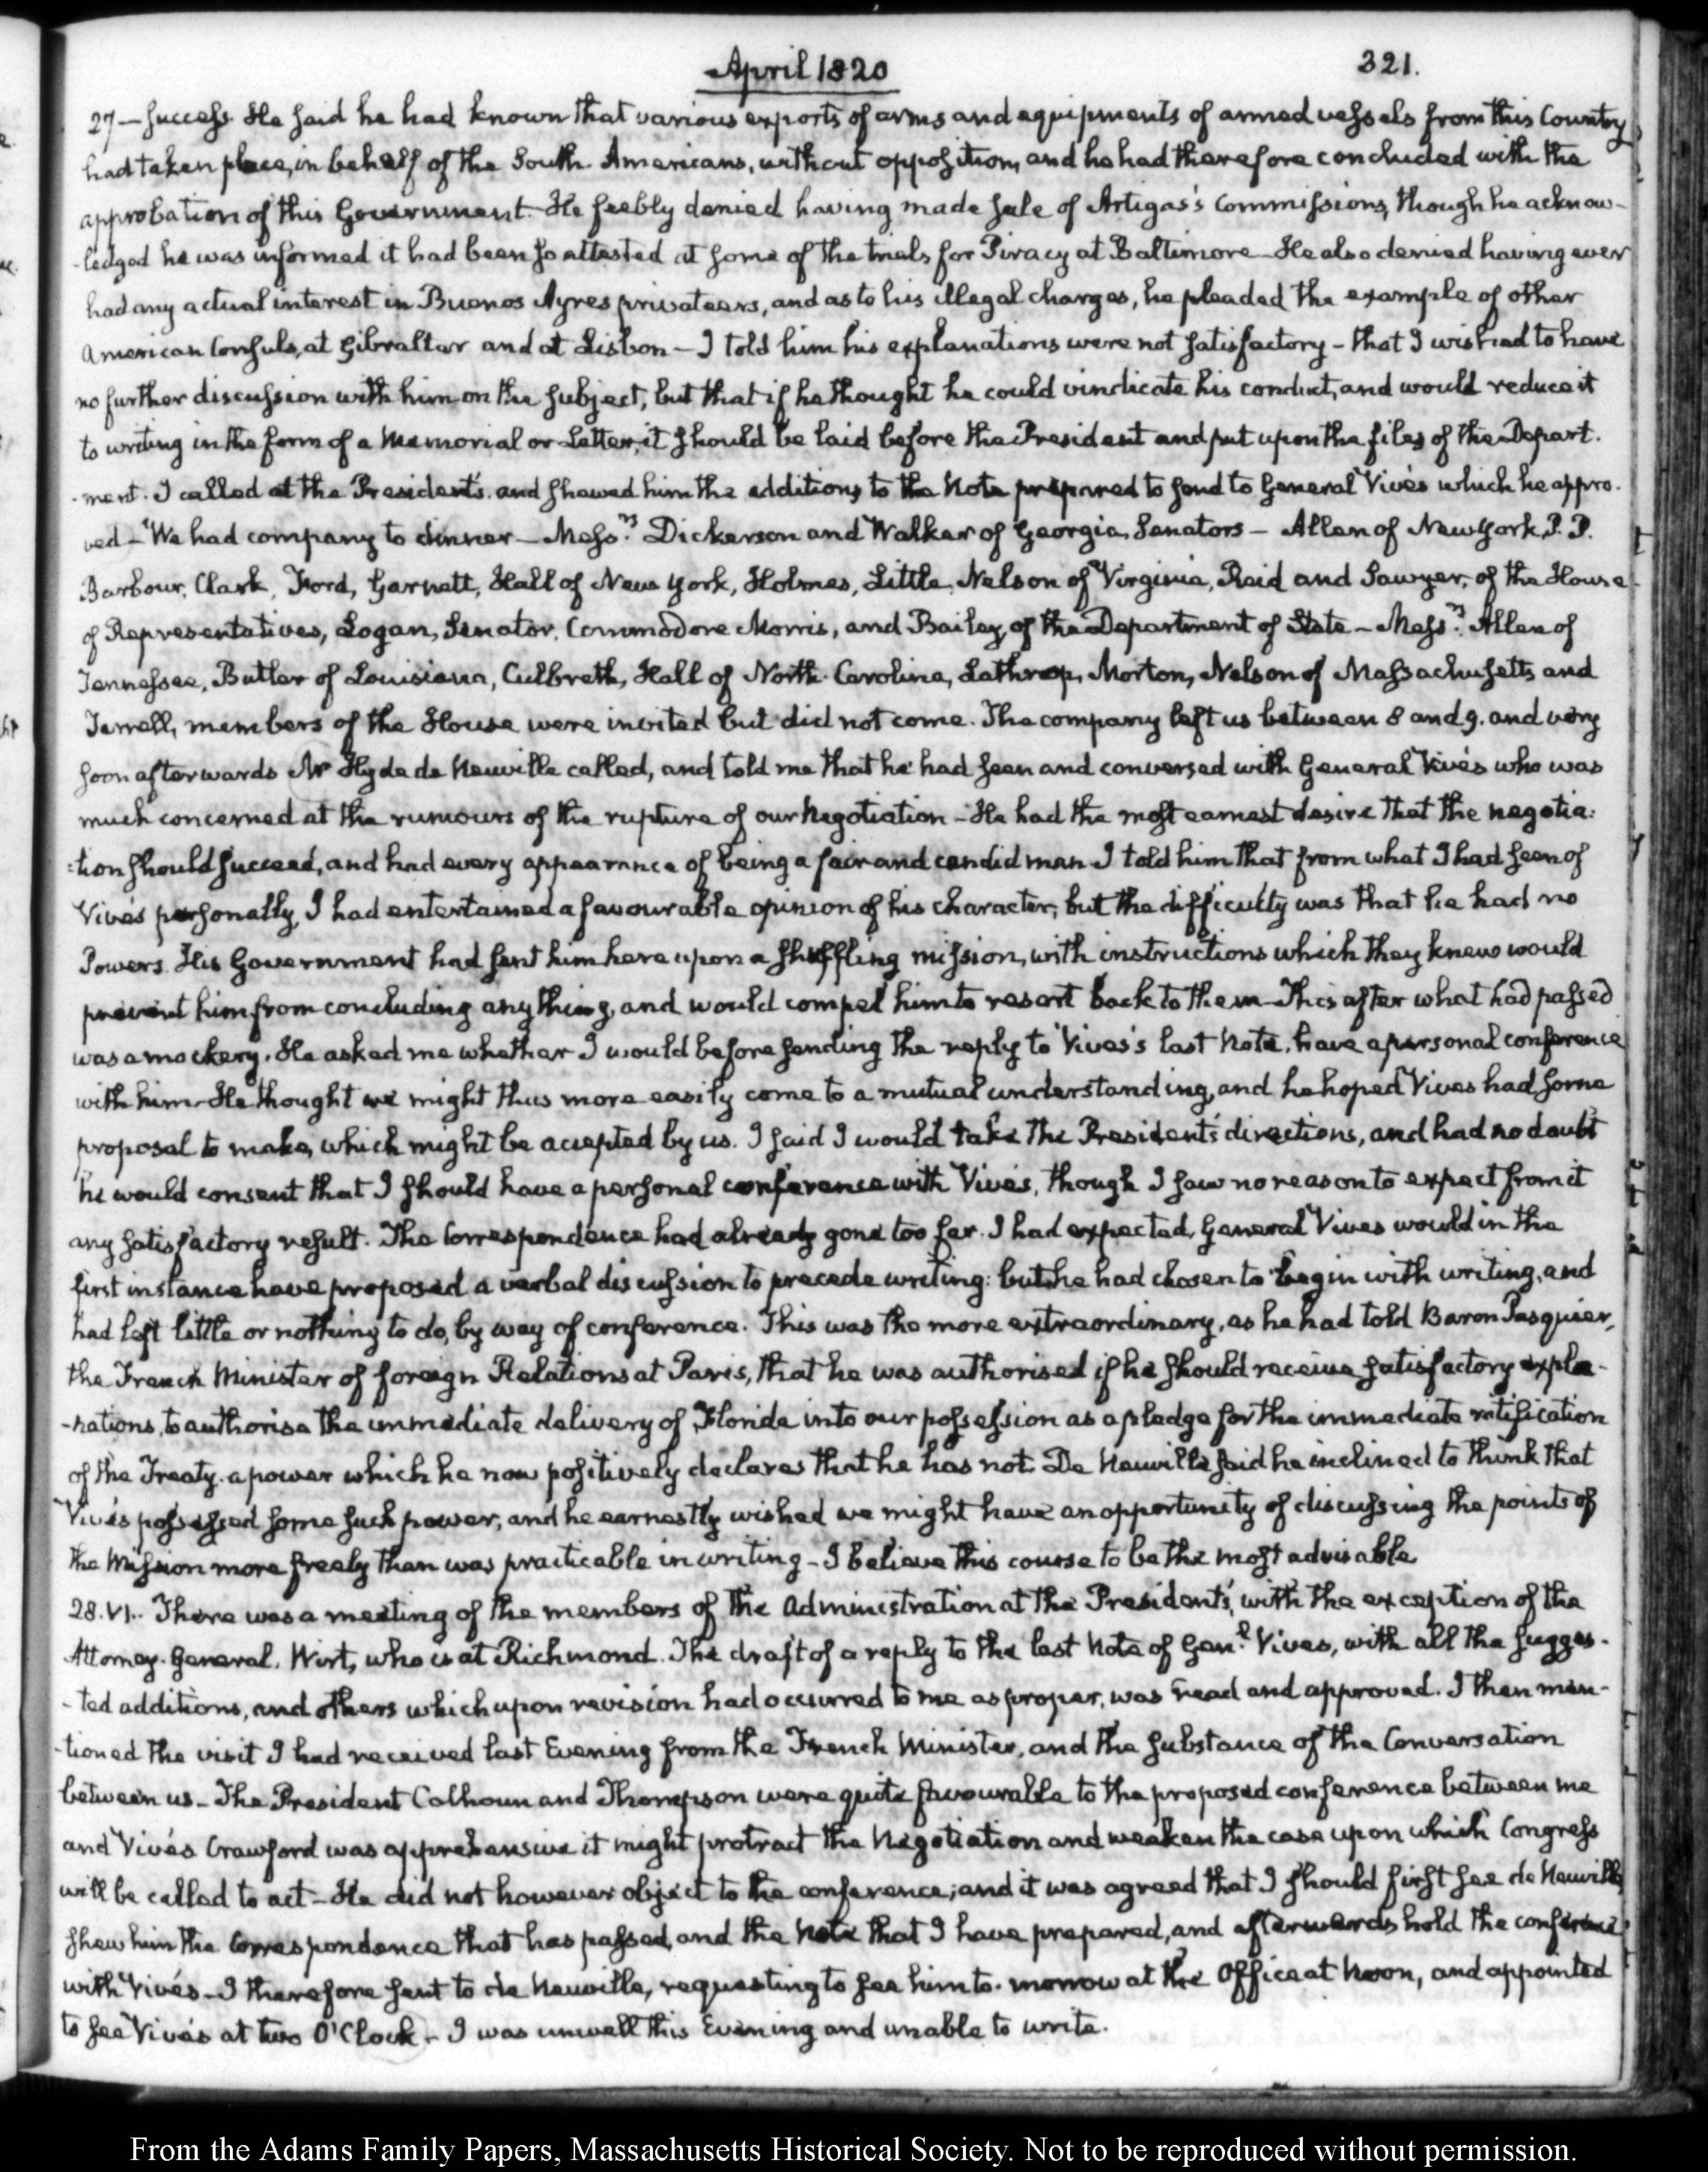 April 1820
321.
27 — success. He said he had known that various exports of arms and equipments of armed vessels from this Country
had taken place, in behalf of the South Americans, without opposition, and he had therefore concluded with the
approbation of this Government. He feebly denied having made sale of Artigas's Commissions, though he acknow-
-ledged he was informed it had been so attested at some of the trials for Piracy at Baltimore — He also denied having ever
had any actual interest in Buenos Ayres privateers, and as to his illegal charges, he pleaded the example of other
American Consuls, at Gibraltar and at Lisbon — I told him his explanations were not satisfactory — that I wished to have
no further discussion with him on the subject, but that if he thought he could vindicate his conduct, and would reduce it
to writing in the form of a Memorial or Letter, it should be laid before the President and put upon the files of the Depart.
-ment. I called at the President's and shewed him the additions to the Note prepared to send to General Vivés which he appro.
ved — We had company to dinner — Mess.rs Dickerson and Walker of Georgia, Senators — Allen of New York, P. P.
Barbour, Clark, Ford, Garnett, Hall of New York, Holmes, Little, Nelson of Virginia, Reid and Sawyer, of the House
of Representatives, Logan, Senator, Commodore Morris, and Bailey, of the Department of State — Mess.rs Allen of
Tennessee, Butler of Louisiana, Culbreth, Hall of North Carolina, Lathrop, Morton, Nelson of Massachusetts and
Terrell, members of the House were invited but did not come. The company left us between 8 and 9. and very
soon afterwards Mr Hyde de Neuville called, and told me that he had seen and conversed with General Vivés who was
much concerned at the rumours of the rupture of our Negotiation — He had the most earnest desire that the negotia:
:tion should succeed, and had every appearance of being a fair and candid man. I told him that from what I had seen of
Vivés personally, I had entertained a favourable opinion of his character; but the difficulty was that he had no
Powers. His Government had sent him here upon a shuffling mission, with instructions which they knew would
prevent him from concluding any thing, and would compel him to resort back to them — This after what had passed
was a mockery. He asked me whether I would before sending the reply to Vives's last Note, have a personal conference
with him — He thought we might thus more easily come to a mutual understanding, and he hoped Vives had some
proposal to make, which might be accepted by us. I said I would take the President's directions, and had no doubt
he would consent that I should have a personal conference with Vivés, though I saw no reason to expect from it
any satisfactory result. The Correspondence had already gone too far. I had expected, General Vives would in the
first instance have proposed a verbal discussion to precede writing: but he had chosen to begin with writing, and
had left little or nothing to do, by way of conference. This was the more extraordinary, as he had told Baron Pasquier,
the French Minister of foreign Relations at Paris, that he was authorised if he should receive satisfactory expla-
-nations, to authorise the immediate delivery of Florida into our possession as a pledge for the immediate ratification
of the Treaty. a power which he now positively declares that he has not. De Neuville said he inclined to think that
Vivés possessed some such power, and he earnestly wished we might have an opportunity of discussing the points of
the Mission more freely than was practicable in writing — I believe this course to be the most advisable
28. VI. There was a meeting of the members of the Administration at the President's, with the exception of the
Attorney. General, Wirt, who is at Richmond. The draft of a reply to the last Note of Gen.l Vives, with all the sugges-
-ted additions, and others which upon revision had occurred to me as proper, was read and approved. I then men-
-tioned the visit I had received last Evening from the French Minister, and the substance of the Conversation
between us — The President Calhoun and Thompson were quite favourable to the proposed conference between me
and Vivés. Crawford was apprehensive it might protract the Negotiation and weaken the case upon which Congress
will be called to act — He did not however object to the conference; and it was agreed that I should first see de Neuville,
shew him the Correspondence that has passed, and the Note that I have prepared, and afterwards hold the conference
with Vivés — I therefore sent to de Neuville, requesting to see him to-morrow at the Office at Noon, and appointed
to see Vivés at two O'Clock — I was unwell this Evening and unable to write.
From the Adams Family Papers, Massachusetts Historical Society. Not to be reproduced without permission.